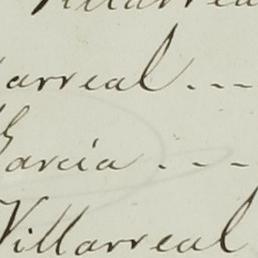 Villarreal
arreal . - -
Garcia . - -
Villarreal